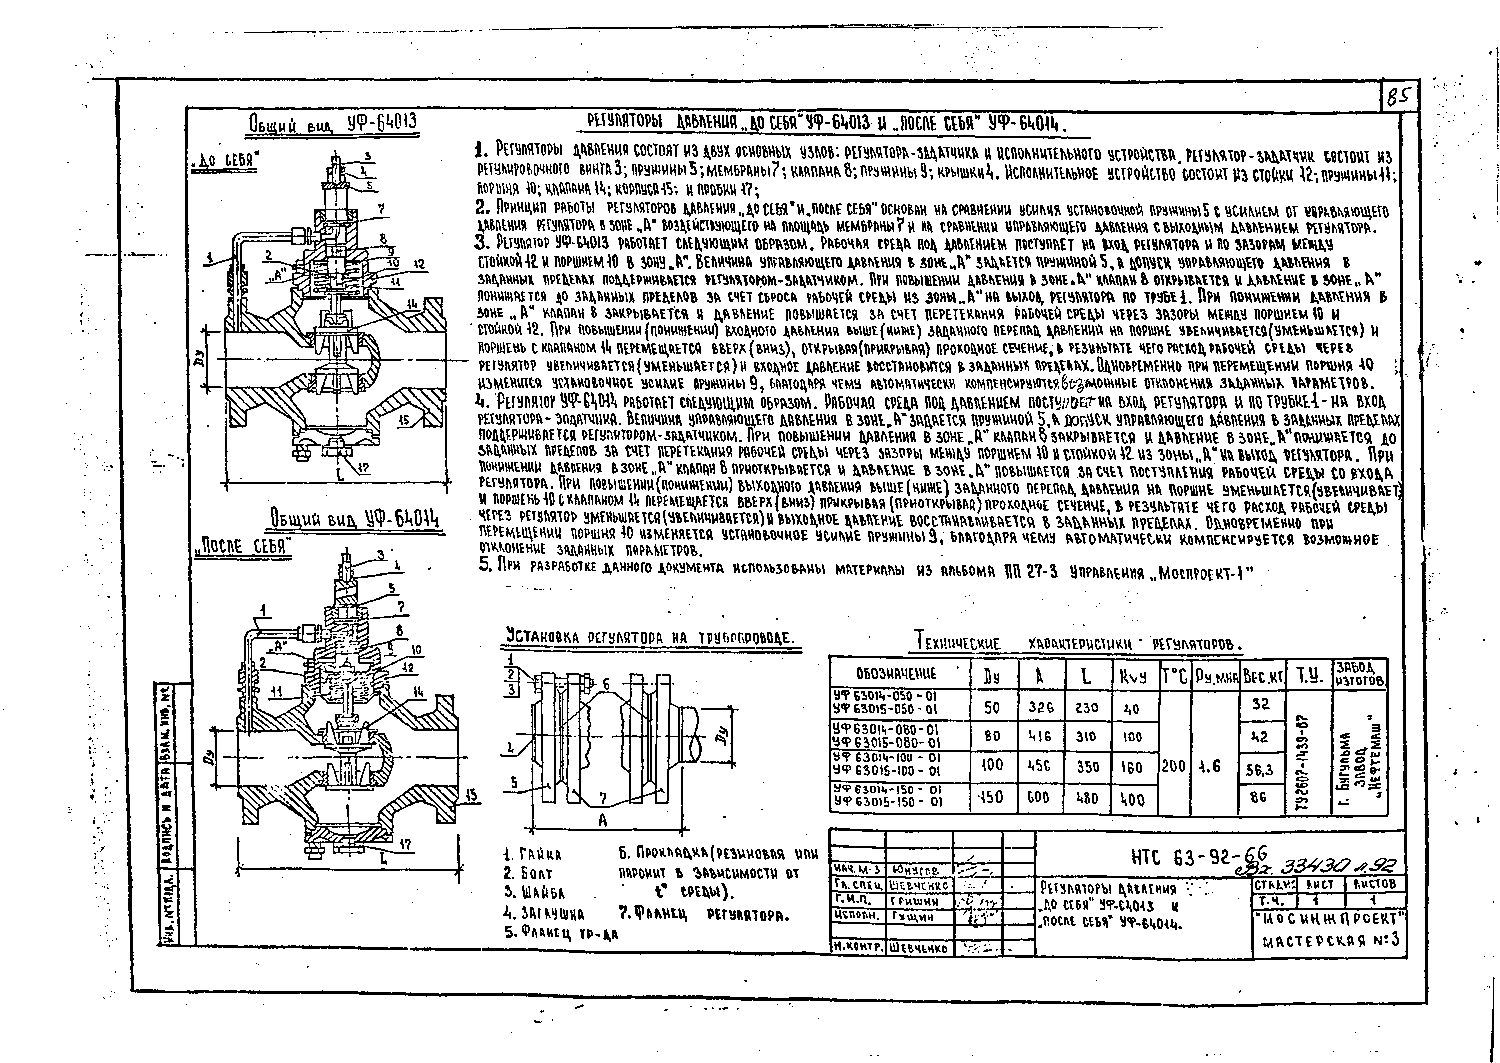 85
Общий вид УФ-64013
„До себя"
Регуляторы давления „До себя" УФ-64013 и „После себя" УФ-64014.
1. Регуляторы давления состоят из двух основных узлов: регулятора-задатчика и исполнительного устройства. Регулятор-задатчик состоит из
регулировочного винта 3; пружины 5; мембраны 7; клапана 8; пружины 9; крышки 4. Исполнительное устройство состоит из стойки 12; пружины 11;
поршня 10; клапана 14; корпуса 15; и пробки 17;
2. Принцип работы регуляторов давления „До себя" и „После себя" основан на сравнении усилия установочной пружины 5 с усилием от управляющего
давления регулятора в зоне „А" воздействующего на площадь мембраны 7 и на сравнения управляющего давления с выходным давлением регулятора.
3. Регулятор УФ-64013 работает следующим образом. Рабочая среда под давлением поступает на вход регулятора и по зазорам между
стойкой 12 и поршнем 10 в зону „А". Величина управляющего давления в зоне „А" задается пружиной 5, а допуск управляющего давления в
заданных пределах поддерживается регулятором-задатчиком. При повышении давления в зоне „А" клапан 8 открывается и давление в зоне „А"
понижается до заданных пределов за счет сброса рабочей среды из зоны „А" на выход регулятора по трубе 1. При понижении давления в
зоне „А" клапан 8 закрывается и давление повышается за счет перетекания рабочей среды через зазоры между поршнем 10 и
стойкой 12. При повышении (понижении) входного давления выше (ниже) заданного перепад давлений на поршне увеличивается (уменьшается) и
поршень с клапаном 14 перемещается вверх (вниз), открывая (прикрывая) проходное сечение, в результате чего расход рабочей среды через
регулятор увеличивается (уменьшается) и входное давление восстановится в заданных пределах. Одновременно при перемещении поршня 10
изменится установочное усилие пружины 9, благодаря чему автоматически компенсируются возможные отклонения заданных параметров.
4. Регулятор УФ-64014 работает следующим образом. Рабочая среда под давлением поступает на вход регулятора и по трубке 1 - на вход
регулятора-задатчика. Величина управляющего давления в зоне „А" задается пружиной 5, а допуск управляющего давления в заданных пределах
поддерживается регулятором-задатчиком. При повышении давления в зоне „А" клапан 8 закрывается и давление в зоне „А" понижается до
заданных пределов за счет перетекания рабочей среды через зазоры между поршнем 10 и стойкой 12 из зоны „А" на выход регулятора. При
понижении давления в зоне „А" клапан 8 приоткрывается и давление в зоне „А" повышается за счет поступления рабочей среды со входа
регулятора. При повышении (понижении) выходного давления выше (ниже) заданного перепад давления на поршне уменьшается (увеличивает)
и поршень 10 с клапаном 14 перемещается вверх (вниз) прикрывая (приоткрывая) проходное сечение, в результате чего расход рабочей среды
через регулятор уменьшается (увеличивается) и выходное давление восстанавливается в заданных пределах. Одновременно при
перемещении поршня 10 изменяется установочное усилие пружины 9, благодаря чему автоматически компенсируется возможное
отклонение заданных параметров.
5. При разработке данного документа использованы материалы из альбома ПП 27-3 управления „Моспроект-1"
3
4
5
7
8
9
10
12
11
14
1
2
„А"
Ду
15
17
L
Общий вид УФ-64014
„После себя"
3
4
5
7
8
9
10
12
14
1
„А"
2
11
Ду
15
17
L
Установка регулятора на трубопроводе.
1
2
3
6
4
5
7
Ду
А
1. Гайка
2. Болт
3. Шайба
4. Заглушка
5. Фланец тр-да
6. Прокладка (резиновая или
паронит в зависимости от
t° среды).
7. Фланец регулятора.
Технические характеристики регуляторов.
Обозначение Ду А L Kvy T°C Ру, мпа Вес, кг Т.У. Завод изготов.
УФ 63014-050-01
УФ 63015-050-01 50 326 230 40 32
УФ 63014-080-01
УФ 63015-080-01 80 416 310 100 42
УФ 63014-100-01
УФ 63015-100-01 100 450 350 160 200 1.6 56,3
УФ 63014-150-01
УФ 63015-150-01 150 600 480 400 86
ТУ2607-1439-87
г. Бугульма завод "Нефтемаш"
НТС 63-92-66
Вх. 33430 л.92
Нач. М-3 Юнусов
Гл. спец. Шевченко
Г.И.П. Гришин
Исполн. Гущин
Н.контр. Шевченко
Регуляторы давления
„До себя" УФ-64013 и
„После себя" УФ-64014.
Стадия Лист Листов
Т.Ч. 1 1
"Мосинжпроект"
Мастерская №3
Инв. № подл. Подпись и дата Взам. инв. №